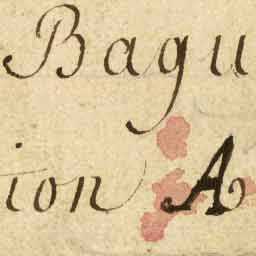 Bagu
ion A